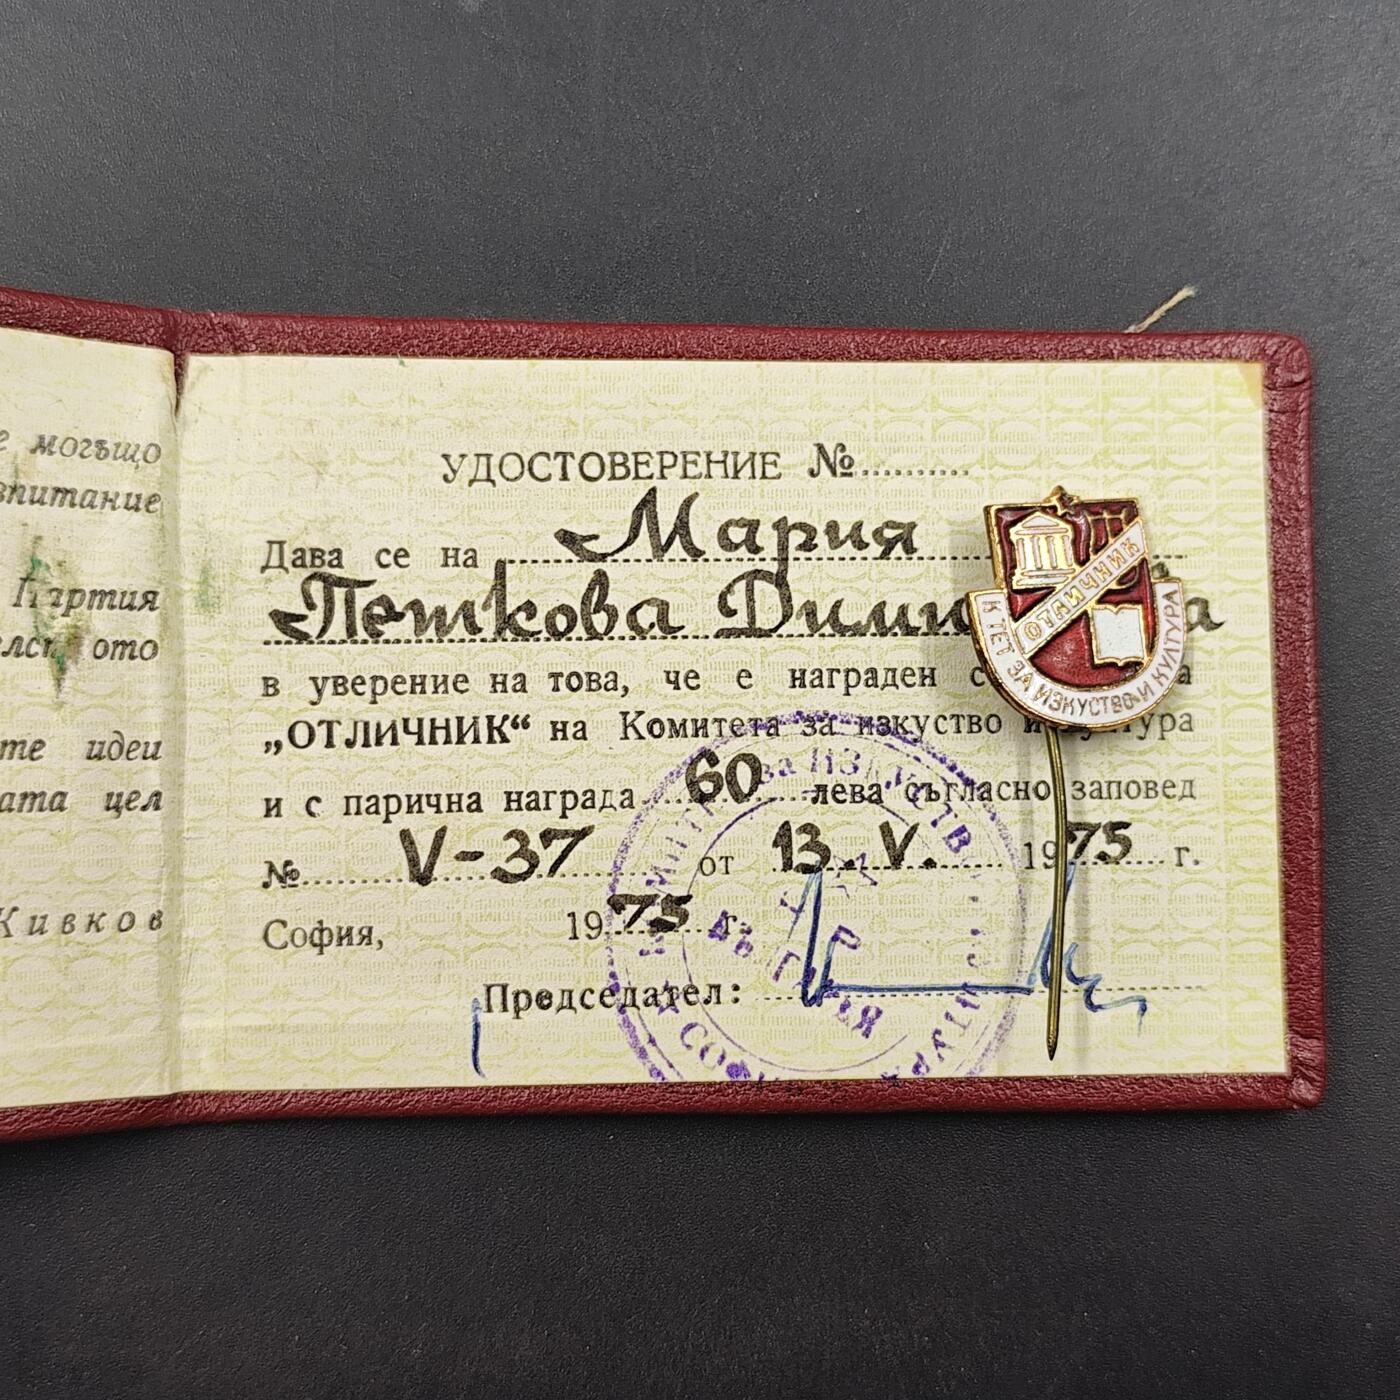 могъщо
Партия
ото
те идеи
цел
Живков
УДОСТОВЕРЕНИЕ №
Дава се на Мария
Петкова
в уверение на това, че е награден
„ОТЛИЧНИК“ на Комитета за изкуство и
и с парична награда 60 лева съгласно заповед
№ V-37 от 13. V. 1975 г.
София, 1975 г.
Председател:
ОТЛИЧНИК
К ТЕТ ЗА ИЗКУСТВО И КУЛТУРА